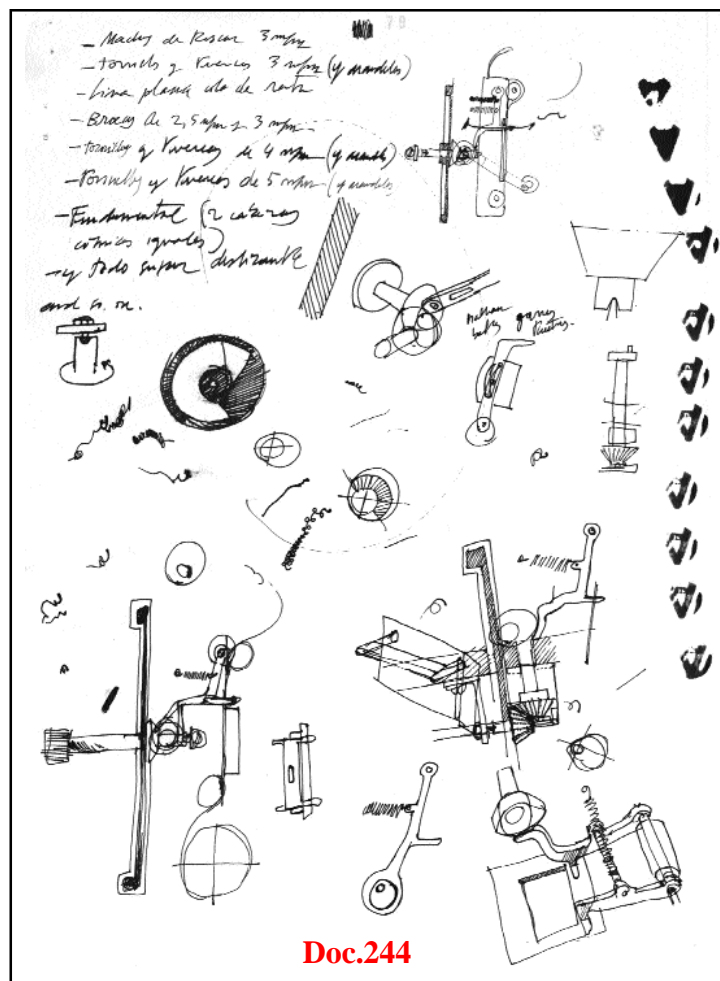 79
- Machos de Roscar 3 m/m
- tornills y tuercas 3 m/m (y arandelas)
- Lima plana cola de rata
- Brocas de 2,5 m/m y 3 m/m
- tornillos y tuercas de 4 m/m (y
- Tornillos y tuercas de 5 m/m (y arandelas
- Fundamental (2 cabezas
cónicas iguales)
- y todo super deslizante
and so on.
Doc.244